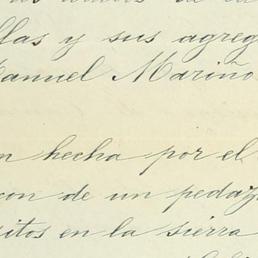 llas y sus agreg
Manuel Mariño
n hecha por el
con de un pedaz
sitos en la sierra